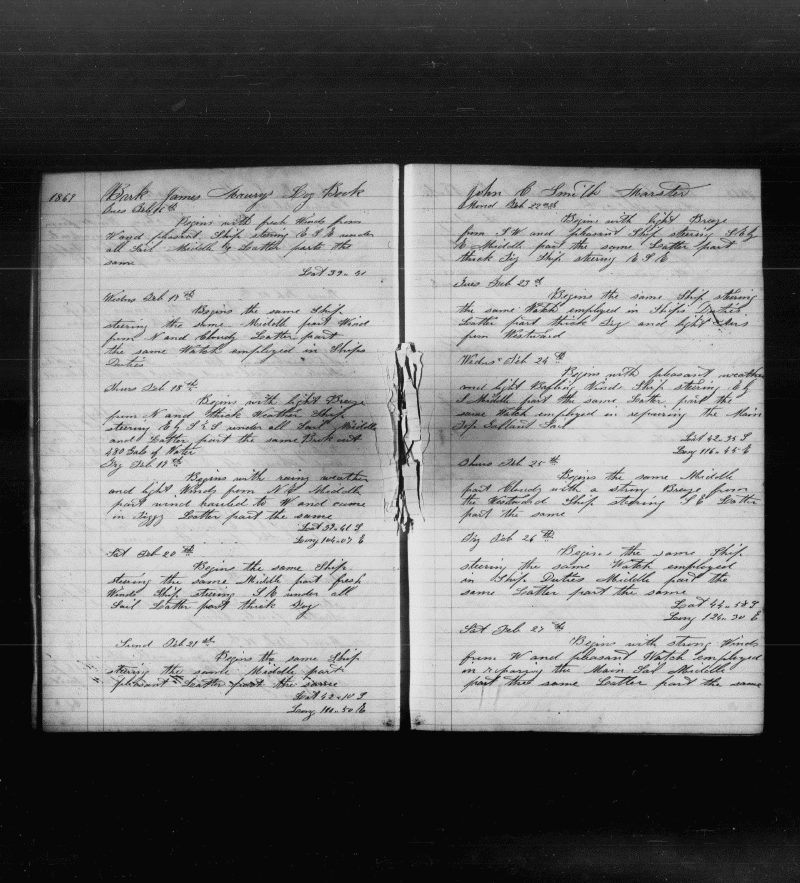 1861 Bark James Maurys Log Book
Tues Feb 16th
Begins with fresh Winds from
W and pleasant Ship steering E S E under
all Sail Middle & Latter parts the
same
Lat 39-21
Wednes Feb 17th
Begins the same Ship
steering the same Middle part Wind
from N and Cloudy Latter part
the same Watch employed in Ships
Duties
Thurs Feb 18th
Begins with light Breeze
from N and thick Weather Ship
steering E by S & S under all Sail Middle
and Latter part the same Broke out
480 Gals of Water
Fry Feb 19th
Begins with rainy weather
and light Winds from N E Middle
part wind hauled to W and came
in Foggy Latter part the same
Lat 39-61 S
Long 104-07 E
Sat Feb 20th
Begins the same Ship
steering the same Middle part fresh
Winds Ship steering S E under all
Sail Latter part thick Fog
Sund Feb 21st
Begins the same Ship
steering the same Middle part
pleasant Latter part the same
Lat 42-10 S
Long 110-50 E
John C Smith Marster
Mond Feb 22nd
Begins with light Breeze
from S W and pleasant Ship steering S E by
E Middle part the same Latter part
thick Fog Ship steering E S E
Tues Feb 23rd
Begins the same Ship steering
the same Watch employed in Ships Duties
Latter part thick Fog and light Airs
from Westward
Wednes Feb 24th
Begins with pleasant weather
and light Baffling Winds Ship steering E by
S Middle part the same Latter part the
same Watch employed in repairing the Main
Top Gallant Sail
Lat 42-35 S
Long 116-45 E
Thurs Feb 25th
Begins the same Middle
part Cloudy with a strong Breeze from
the Westward Ship steering S E Latter
part the same
Fry Feb 26th
Begins the same Ship
steering the same Watch employed
in Ship Duties Middle part the
same Latter part the same
Lat 44-58 S
Long 124-30 E
Sat Feb 27th
Begins with strong Winds
from W and pleasant Watch employed
in repairing the Main Sail Middle
part the same Latter part the same